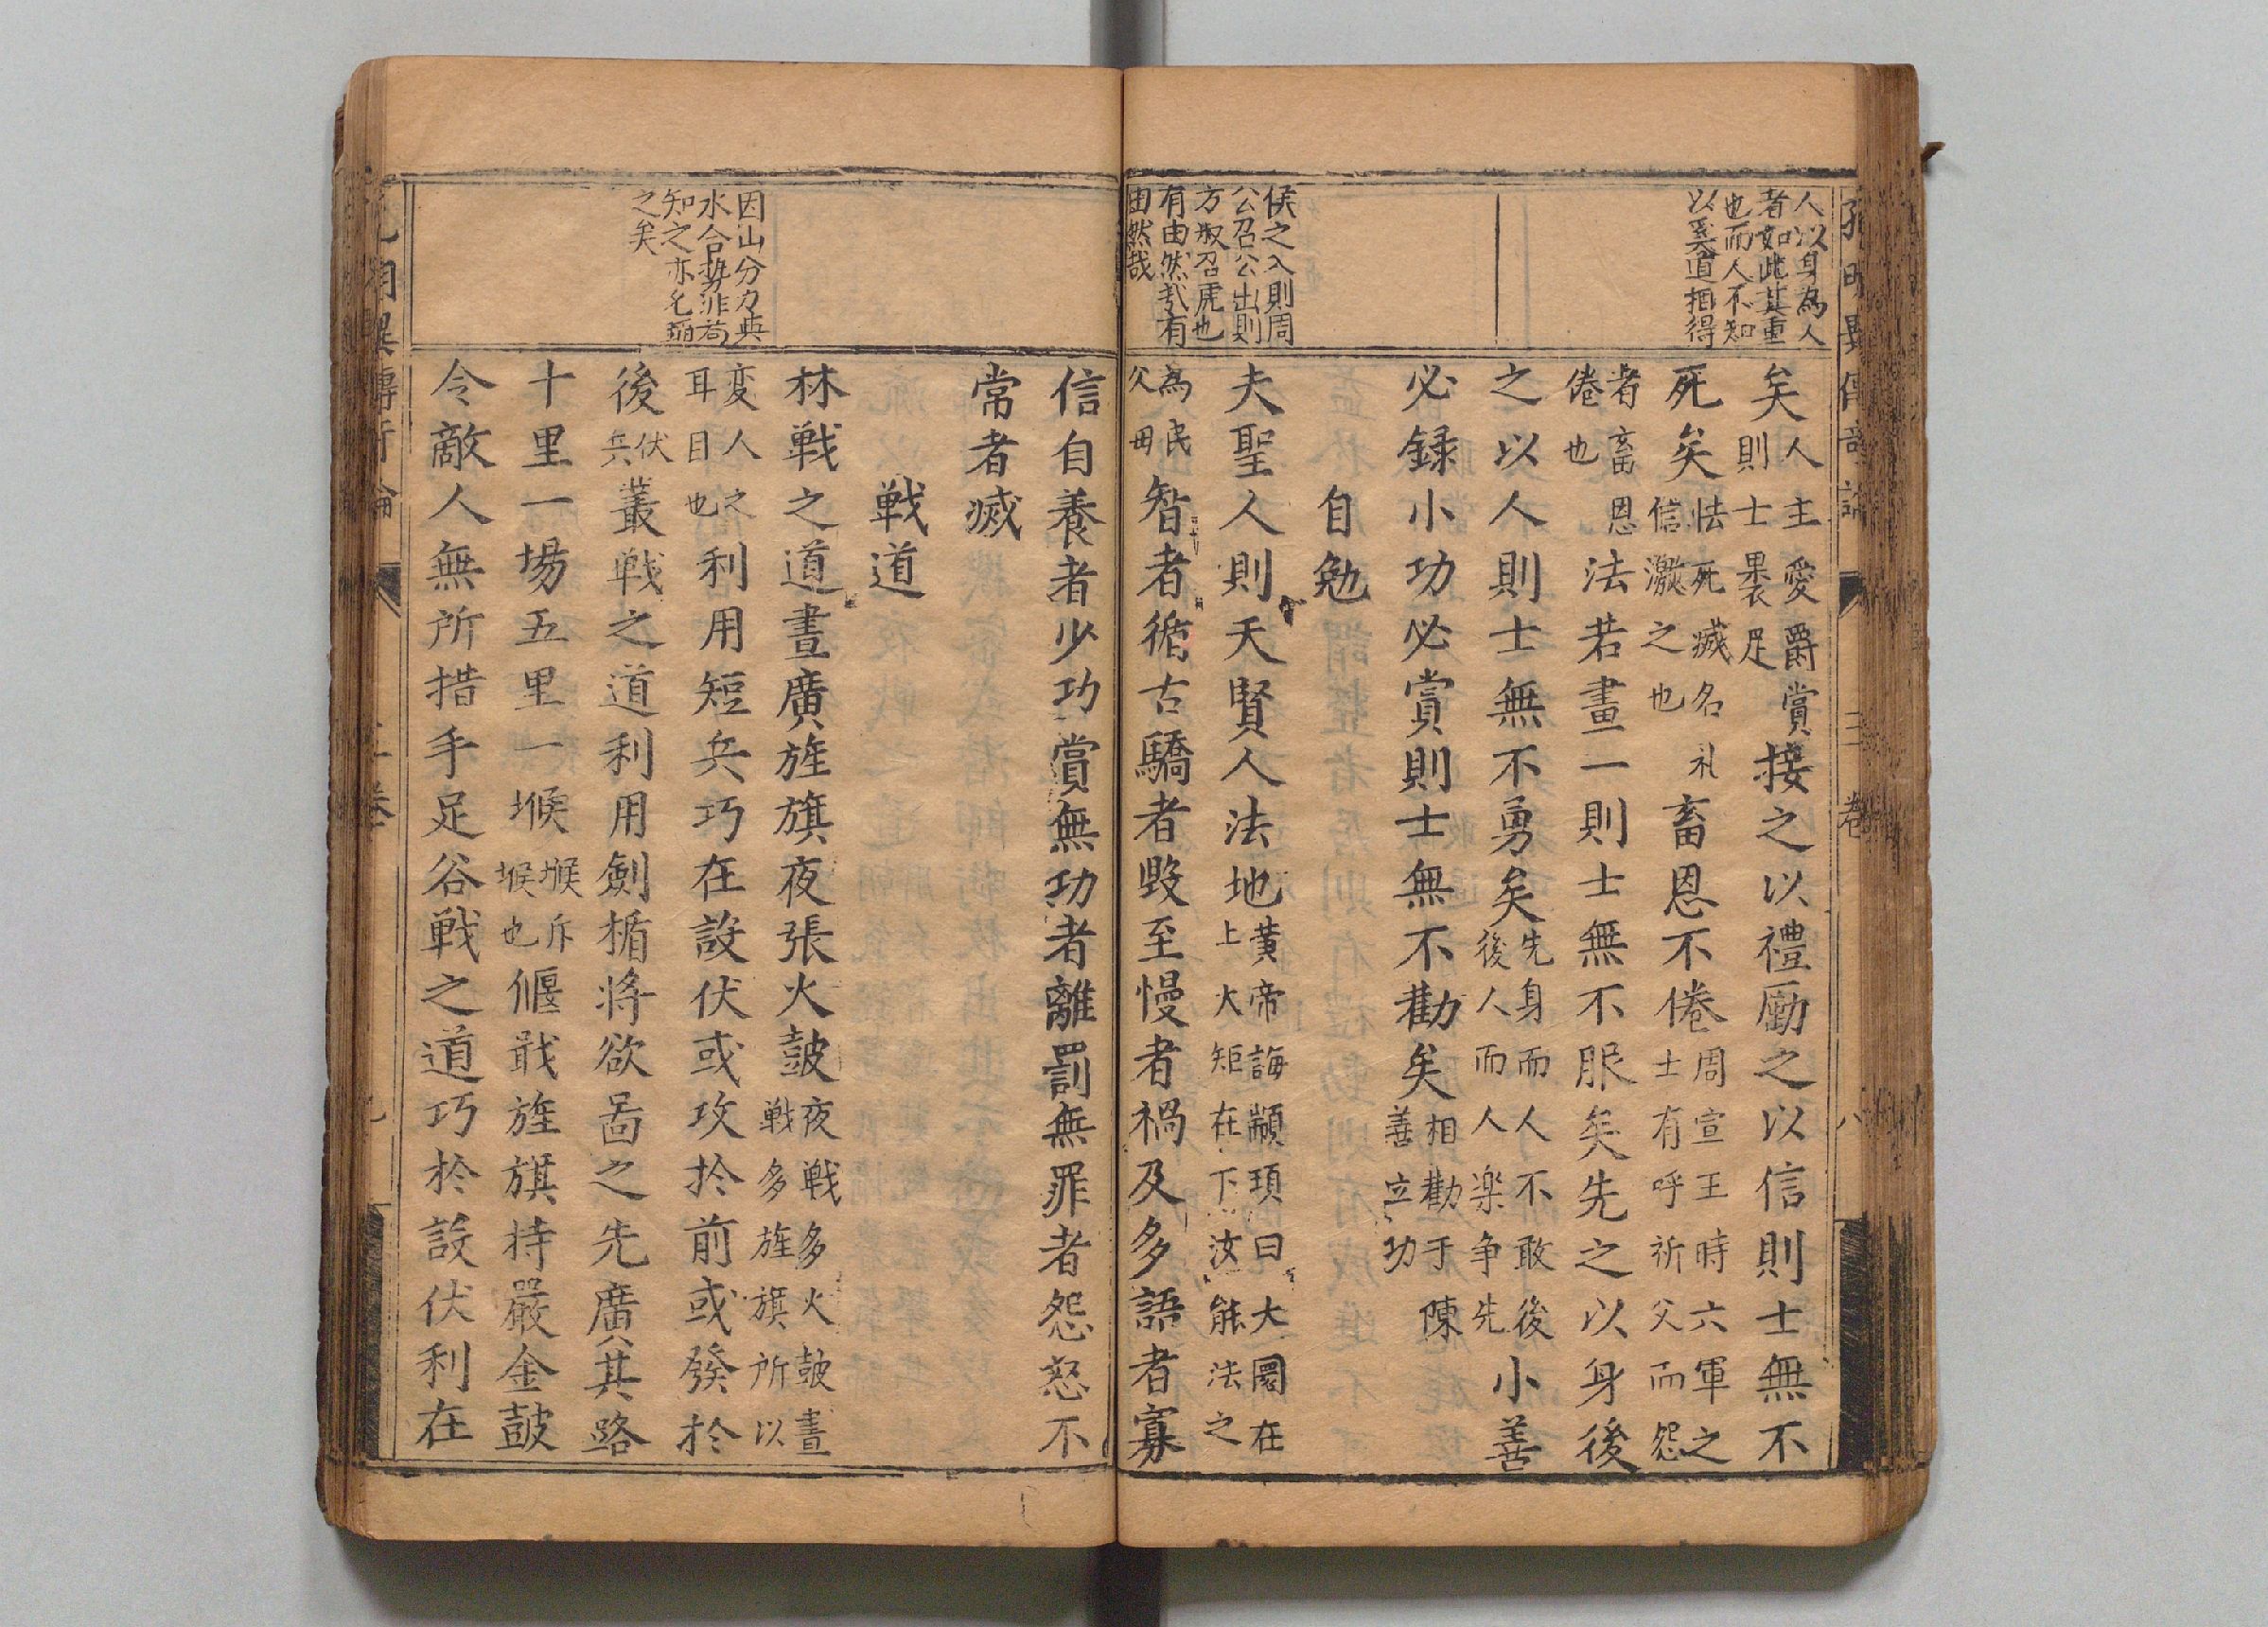 人以身為人
者如此其重
也而人不知
以奚道相得
矣人主愛爵賞則士果足接之以禮勵之以信則士無不
死矣怯死滅名礼信激之也畜恩不倦周宣王時六軍之士有呼祈父而怨
者畜恩倦也法若畫一則士無不服矣先之以身後
之以人則士無不勇矣先身而人不敢後後人而人楽争先小善
必録小功必賞則士無不勸矣相勸于陳善立功
自勉
侯之入則周
公召公出則
方叔召虎也
有由然哉有
由然哉
夫聖人則天賢人法地黄帝誨顓頊曰大圜在上大矩在下汝能法之
為民父母智者循古驕者毀至慢者禍及多語者寡
信自養者少功賞無功者離罰無罪者怨怒不
常者滅
戦道
因山分力典
水合勢非苟
知之亦允蹈
之矣
林戦之道晝廣旌旗夜張火皷夜戦多火皷晝戦多旌旗所以
変人之耳目也利用短兵巧在設伏或攻扵前或發扵
後伏兵叢戦之道利用劍楯将欲啚之先廣其路
十里一場五里一堠堠斥堠也偃戢旌旗持嚴金皷
令敵人無所措手足谷戦之道巧扵設伏利在